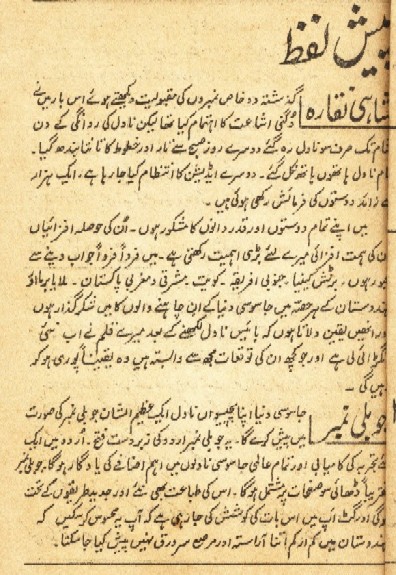 پیش لفظ
شاہی نقارہ
گذشتہ دو خاص نمبروں کی مقبولیت دیکھتے ہوئے اس بار میں نے
دگنی اشاعت کا اہتمام کیا تھا لیکن ناول کی روانگی کے دن
شام تک صرف سو ناول رہ گئے دوسرے روز صبح سے تار اور خطوط کا تانتا بندھ گیا۔
تمام ناول ہاتھوں ہاتھ نکل گئے۔ دوسرے ایڈیشن کا انتظام کیا جا رہا ہے، ایک ہزار
سے زائد دوستوں کی فرمائش رکھی ہوئی ہیں۔
میں اپنے تمام دوستوں اور قدر دانوں کا مشکور ہوں۔ اُن کی حوصلہ افزائیاں
ان کی ہمت افزائی میرے لئے بڑی اہمیت رکھتی ہے۔ میں فرداً فرداً جواب دینے سے
مجبور ہوں۔ برٹش کینیا۔ جنوبی افریقہ۔ کویت۔ مشرقی و مغربی پاکستان۔ ملایا برما اور
ہندوستان کے ہر حصّہ میں جاسوسی دنیا کے ان چاہنے والوں کا میں شکر گذار ہوں
اور انھیں یقین دلاتا ہوں کہ بائیس ناول لکھنے کے بعد میرے قلم نے اب نئی
انگڑائی لی ہے اور جو کچھ ان کی توقعات مجھ سے وابستہ ہیں وہ یقیناً پوری ہو کر
رہیں گی۔
جوبلی نمبر
جاسوسی دنیا اپنا پچیسواں ناول ایک عظیم الشان جوبلی نمبر کی صورت
میں پیش کرے گا۔ یہ جوبلی نمبر اردو کی زبردست فتح۔ اُردو میں ایک
نئے تجربہ کی کامیابی اور تمام عالمی جاسوسی ناولوں میں اہم اضافے کی یادگار ہوگا۔ جوبلی نمبر
تقریباً ڈھائی سو صفحات پر مشتمل ہوگا۔ اس کی طباعت بھی نئے اور جدید طریقوں کے تحت
ہوگی اور گٹ اَپ میں اس بات کی کوشش کی جا رہی ہے کہ آپ یہ محسوس کر سکیں کہ
ہندوستان میں کم از کم اتنا آراستہ اور مرصع سرورق نہیں پیش کیا جا سکتا۔